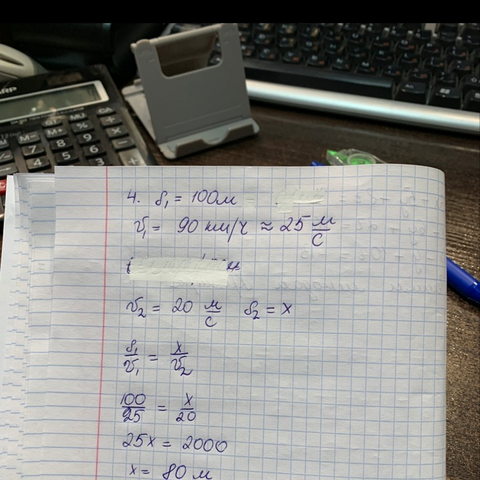 4. S₁ = 100м
v₁ = 90 км/ч ≈ 25 м/с
v₂ = 20 м/с S₂ = x
S₁/v₁ = x/v₂
100/25 = x/20
25x = 2000
x = 80 м